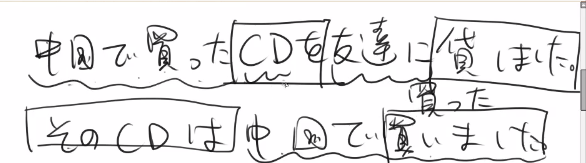 中国で買ったCDを友達に貸しました。
買った
そのCDは中国で買いました。